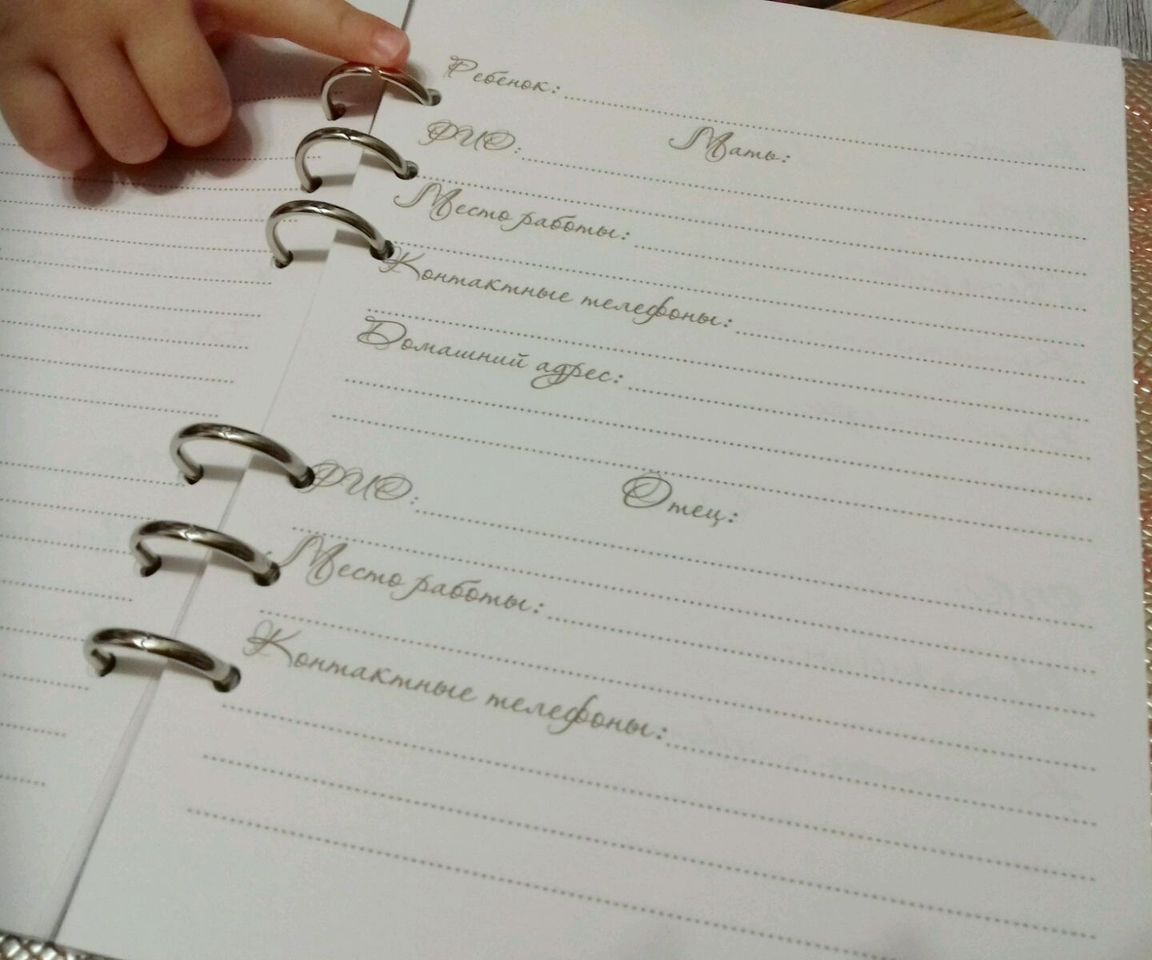 Ребенок:
Мать:
ФИО:
Место работы:
Контактные телефоны:
Домашний адрес:
Отец:
ФИО:
Место работы:
Контактные телефоны: